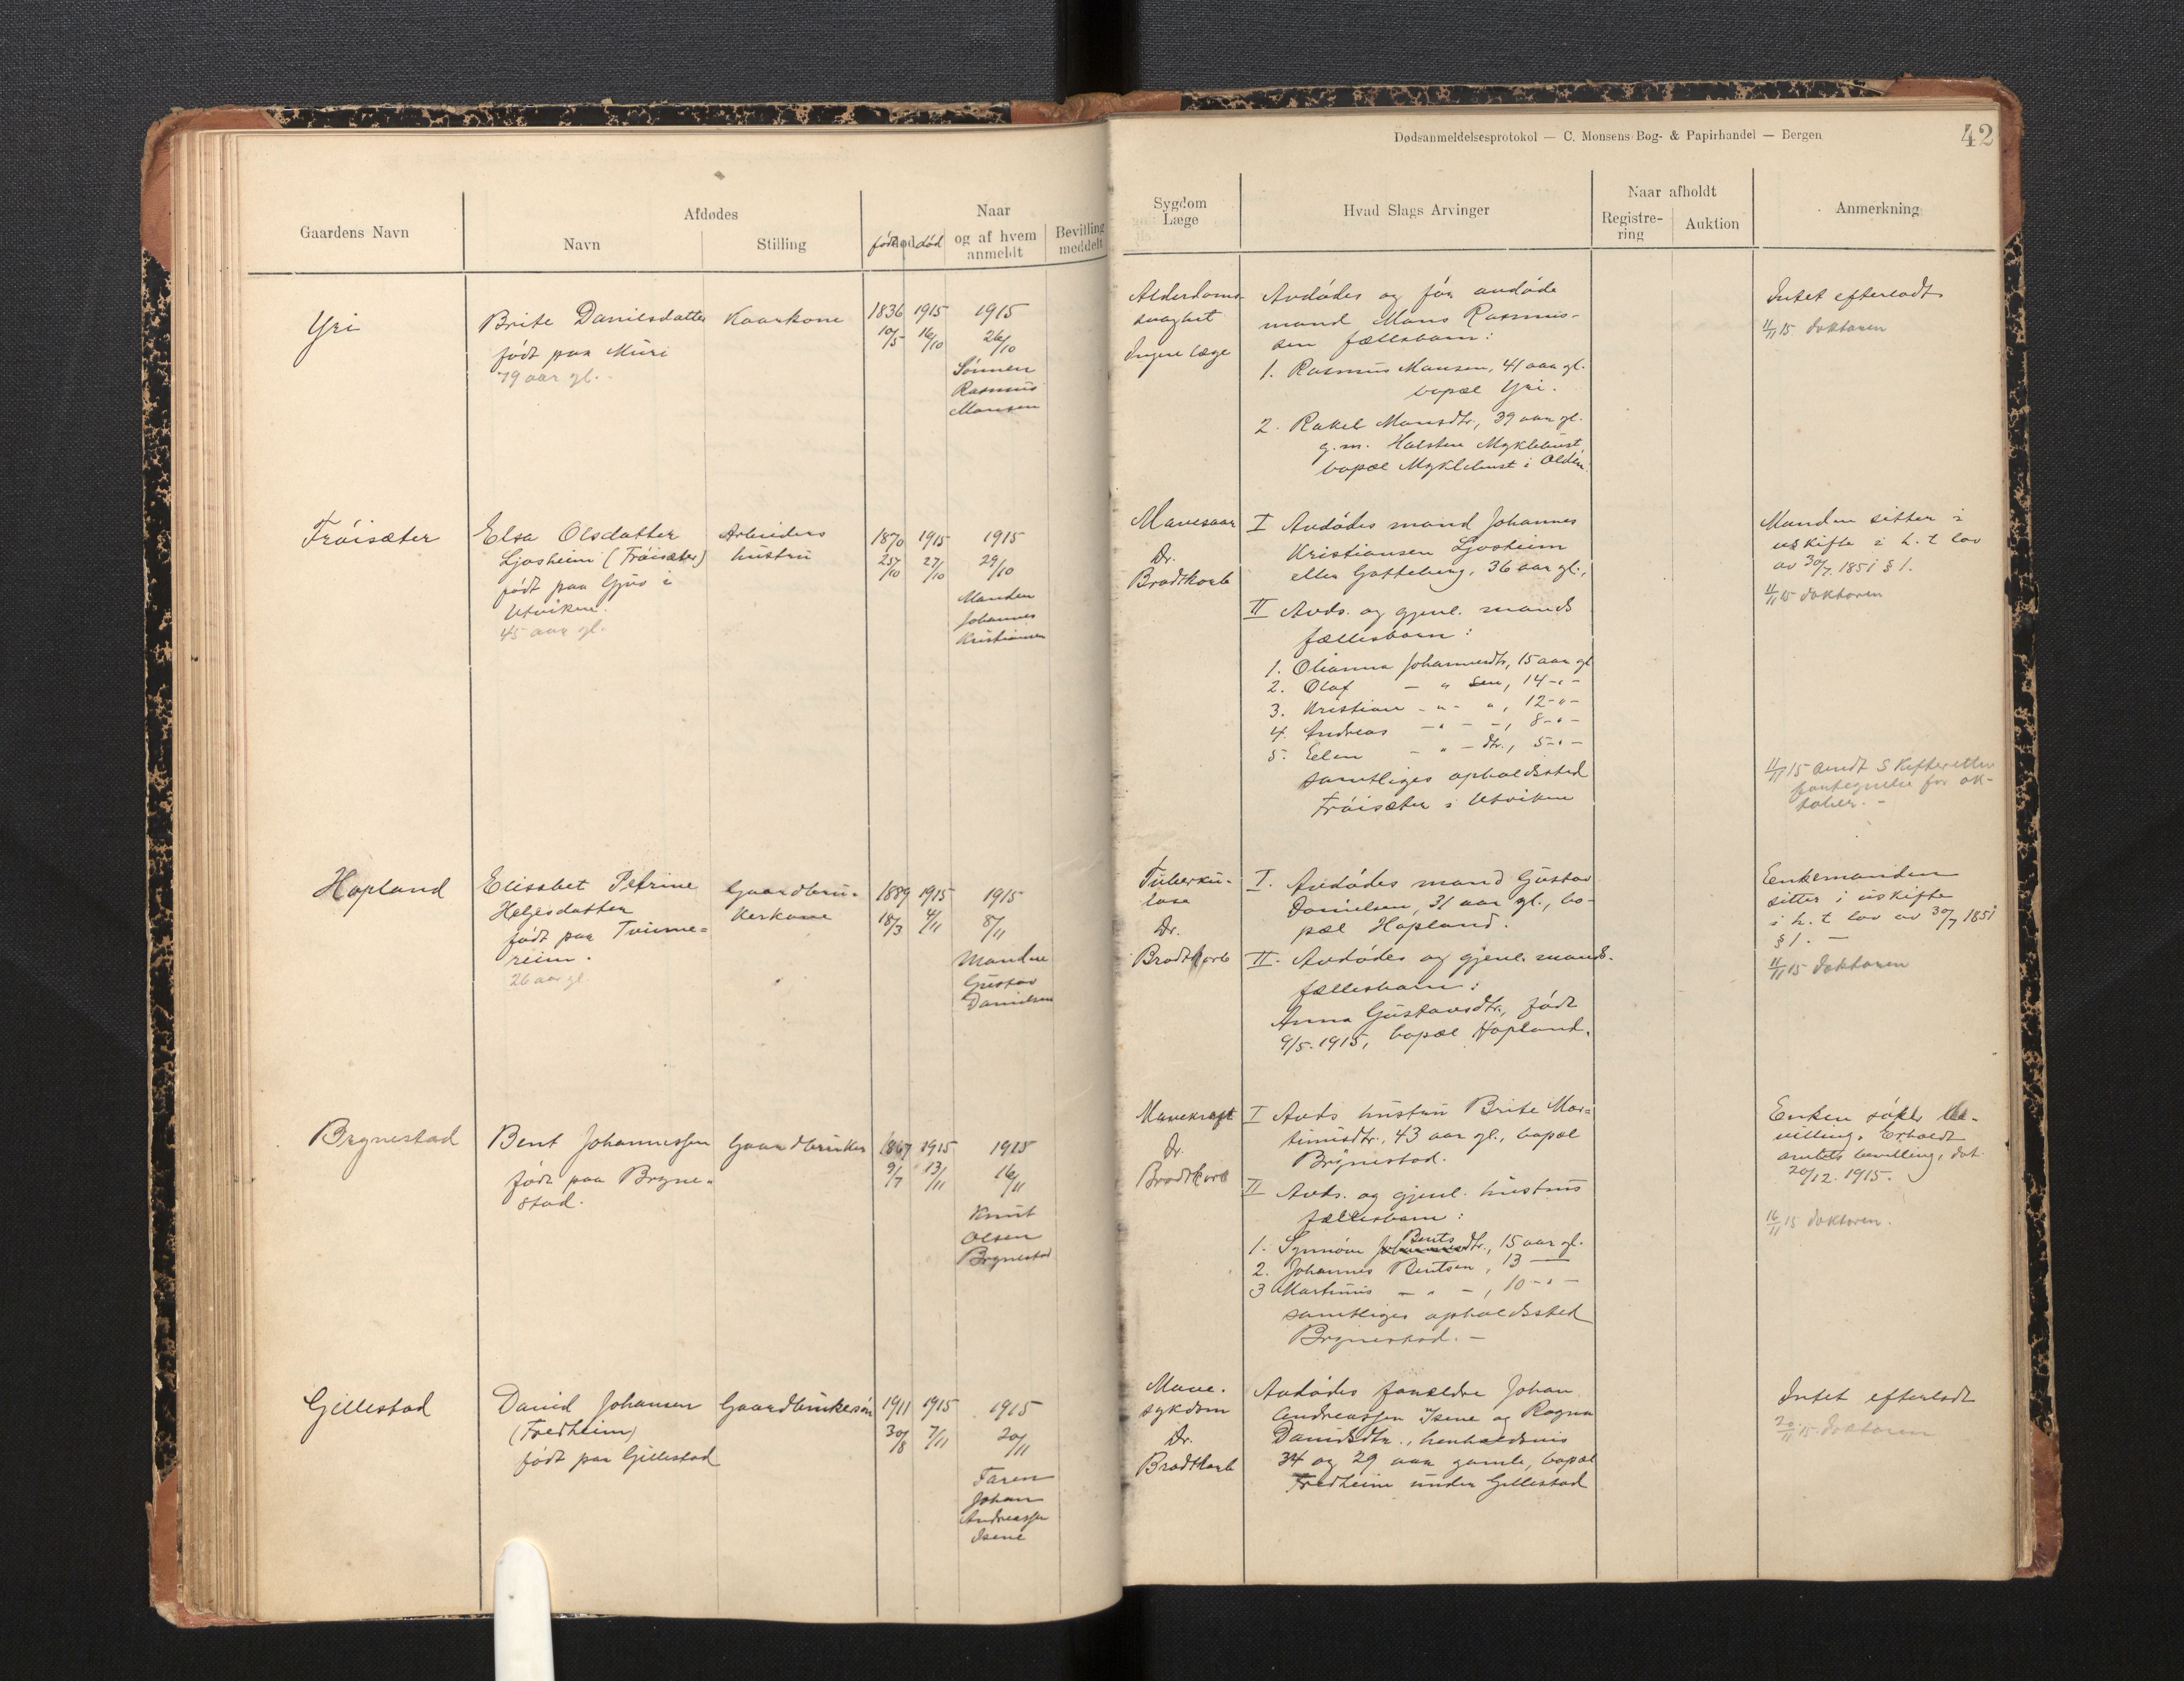 Dødsanmeldelsesprotokol — C. Monsens Bog- & Papirhandel — Bergen
42
Gaardens Navn
Afdødes
Navn
Stilling
født død
Naar
og af hvem
anmeldt
Bevilling
meddelt
Sygdom
Læge
Hvad Slags Arvinger
Naar afholdt
Registre-
ring
Auktion
Anmerkning
Yri
Brite Danielsdatter
født paa Muri
79 aar gl.
Kaarkone
1836 10/5
1915 16/10
1915
26/10
Sönnen
Rasmus
Mansen
Alderdoms-
svaghet
Ingen læge
Avdödes og för avdöde
mand Mons Rasmus-
sen fællesbarn:
1. Rasmus Mansen, 41 aar gl.
bopæl Yri.
2. Rakel Monsdtr., 39 aar gl.
g.m. Halsten Myklebust,
bopæl Myklebust i Olden.
Intet efterladt
11/11 15 doktoren
Fröisæter
Elsa Olsdatter
Ljosheim (Fröisæter)
født paa Gjus i
Utviken.
45 aar gl.
Arbeiders
hustru
1870 25/10
1915 27/10
1915
29/10
Manden
Johannes
Kristiansen
Mavesaar
Dr.
Bradtkorb
I Avdödes mand Johannes
Kristiansen Ljosheim
eller Gattebery, 36 aar gl.,
II Avds. og gjenl. mands
fællesbarn:
1. Olianna Johannesdtr, 15 aar gl
2. Olaf — " sen, 14 -"-
3. Kristian -"- ", 12 -"-
4. Andreas -"- -, 8 -"-
5. Elen - " - dtr., 5 -"-
samtliges opholdssted
Fröisæter i Utviken
Manden sitter i
uskifte i h. t. lov
av 30/7 1851 § 1.
11/11 15 doktoren
11/11 15 sendt Skifteretten
fortegnelse for ok-
tober. -
Hopland
Elisabet Petrine
Helgesdatter
født paa Tvinne=
reim.
26 aar gl
Gaardbru-
kerkone
1889 18/3
1915 4/11
1915
8/11
Manden
Gustav
Danielsen
Tuberku-
lose
Dr.
Bradtkorb
I. Avdödes mand Gustav
Danielsen, 31 aar gl., bo-
pæl Hopland.
II. Avdödes og gjenl. mands.
fællesbarn:
Anna Gustavsdtr., født
9/5. 1915, bopæl Hopland.
Enkemanden
sitter i uskifte
i h. t. lov av 30/7 1851
§ 1. —
11/11 15 doktoren
Brynestad
Bent Johannessen
født paa Bryne=
stad.
Gaardbruker
1867 9/7
1915 13/11
1915
16/11
Knut
Olsen
Brynestad
Mavekræft
Dr.
Bradtkorb
I Avds hustru Brite Mar=
tinusdtr., 43 aar gl., bopæl
Brynestad.
II Avds. og gjenl. hustrus
fællesbarn:
1. Synnöve Bentsdtr., 15 aar gl.
2. Johannes Bentsen, 13 —
3 Martinus — " —, 10 -"-
samtliges opholdssted
Brynestad. —
Enken söker be-
villing. Erholdt
amtets bevilling, dat.
20/12. 1915.
16/11 15 doktoren.
Gillestad
David Johansen
(Fredheim)
født paa Gillestad
Gaardbrukersön
1911 30/8
1915 7/11
1915
20/11
Faren
Johan
Andreassen
Isene
Mave-
sykdom
Dr.
Bradtkorb
Avdödes forældre Johan
Andreassen Isene og Ragna
Davidsdtr., henholdsvis
34 og 29 aar gamle, bopæl
Fredheim under Gillestad
Intet efterladt
20/11 15 doktoren